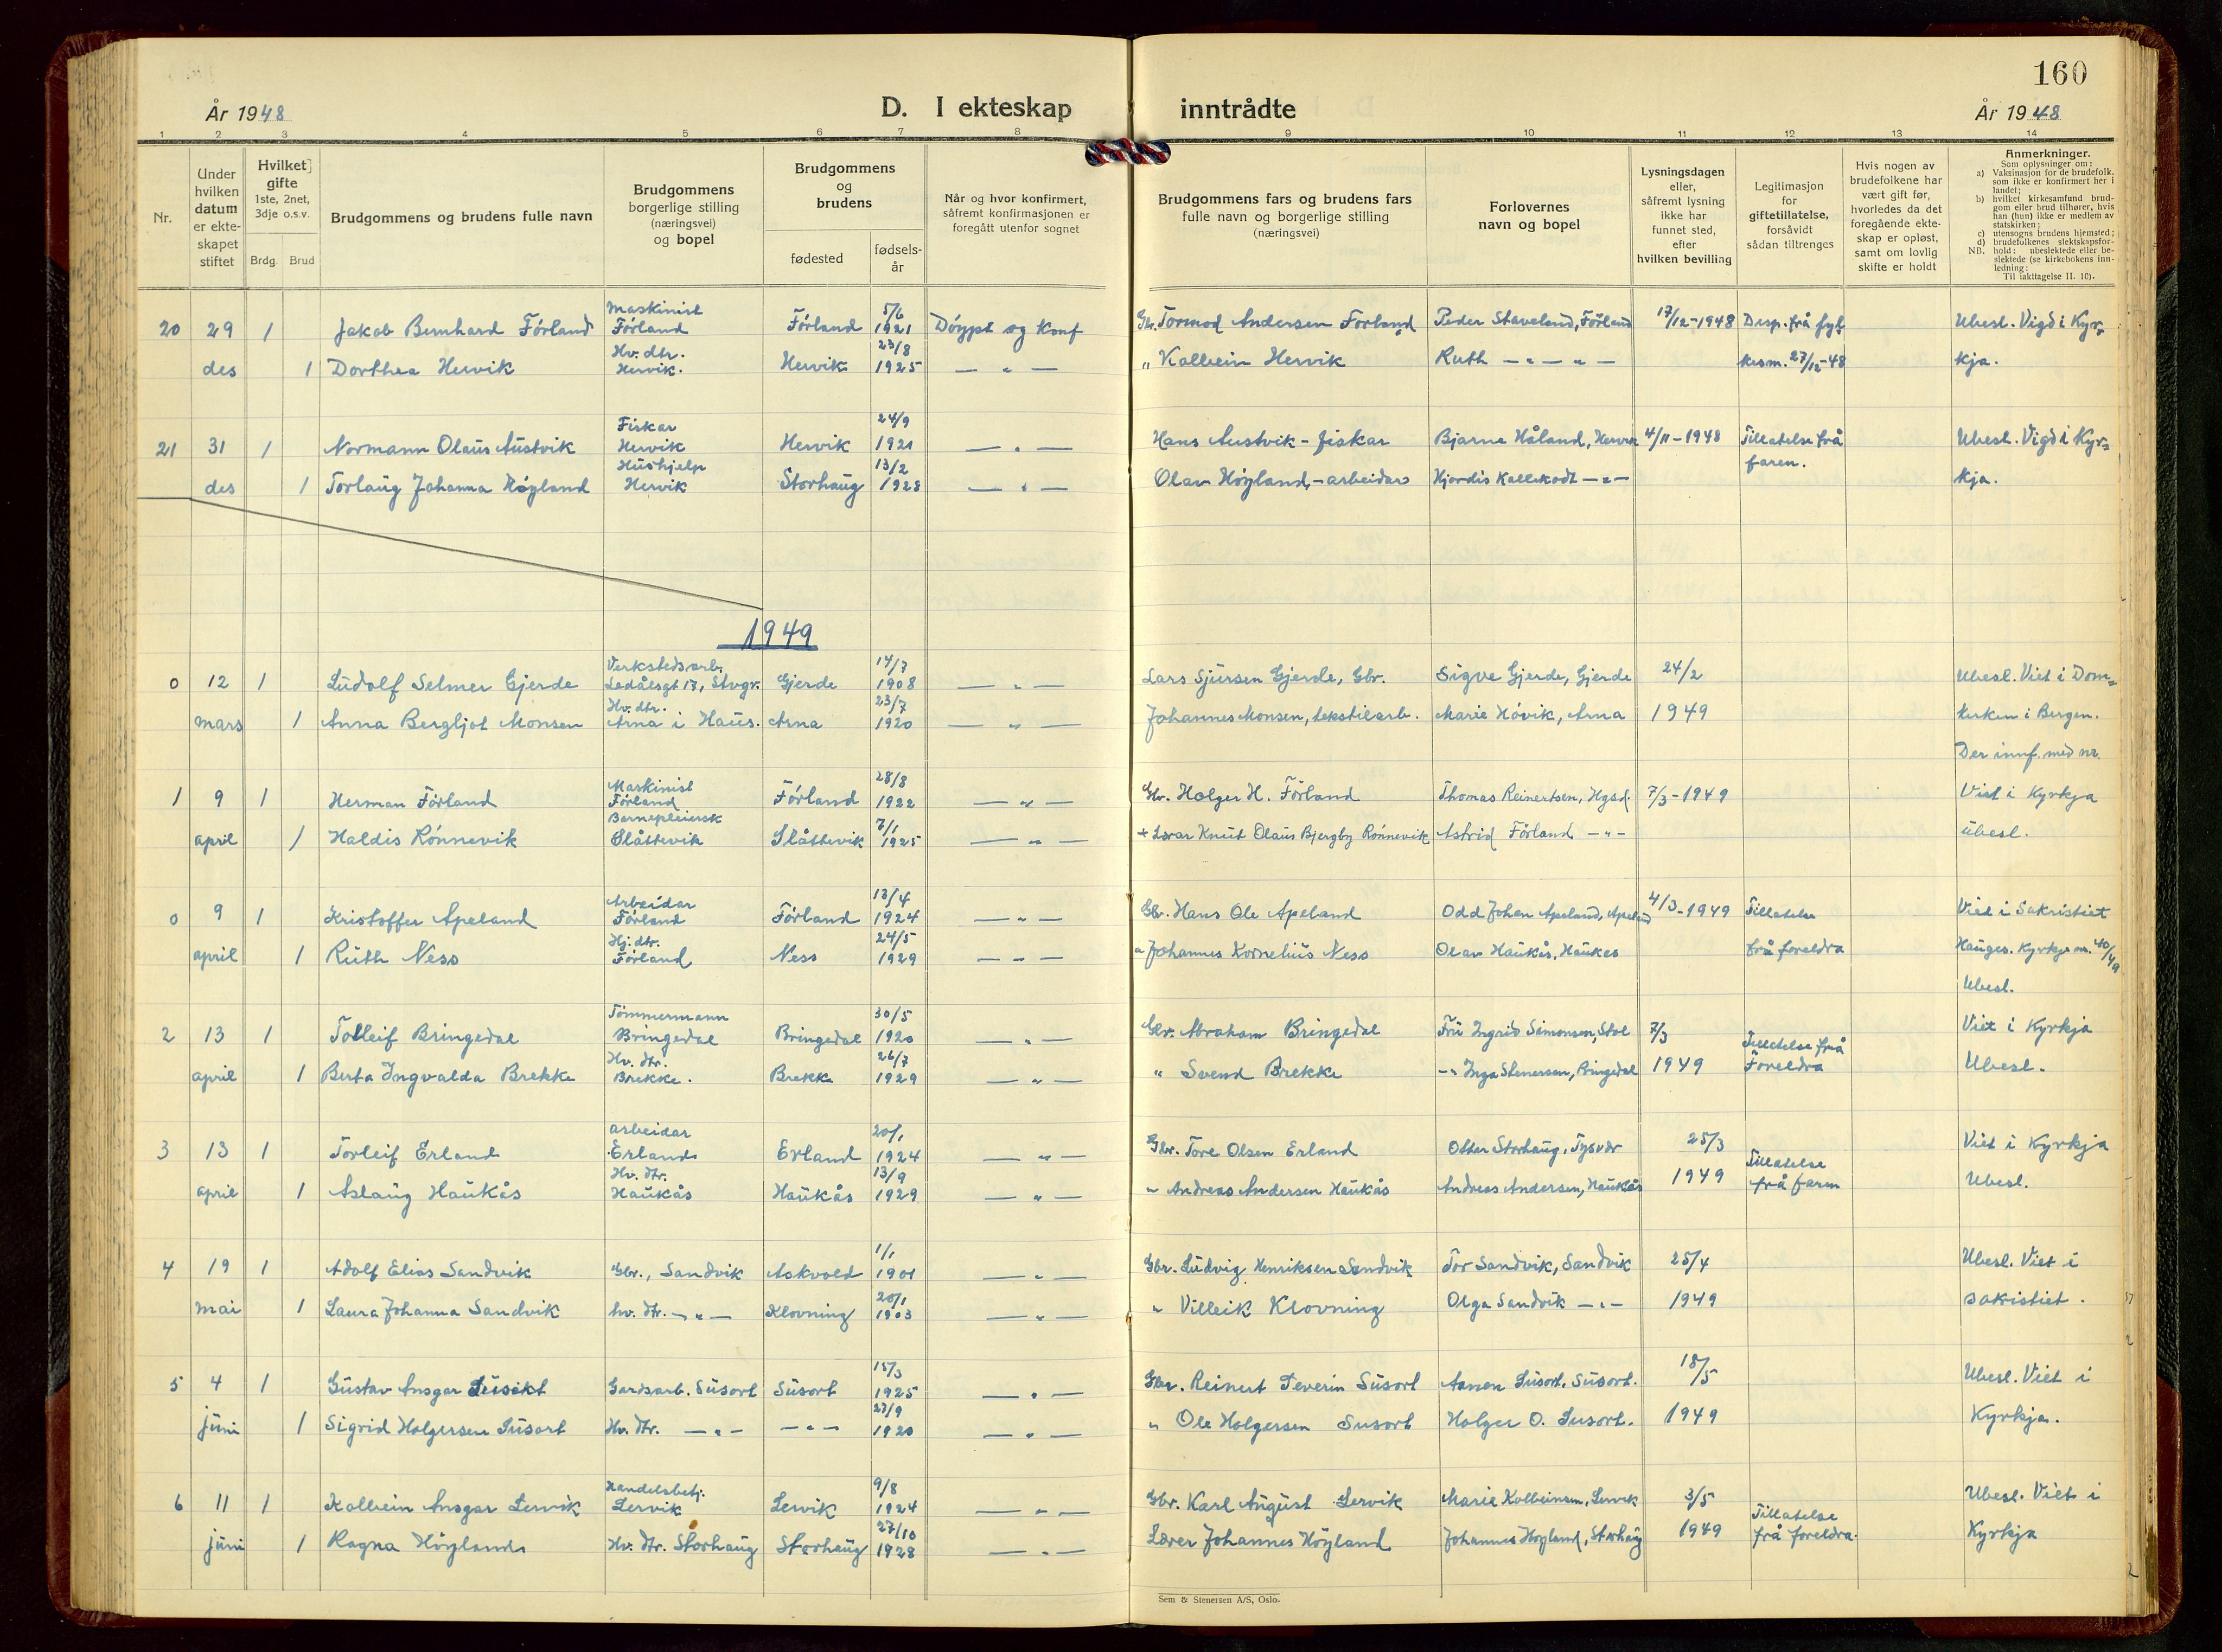 160
År 1948
D. I ekteskap inntrådte
År 1948
1 2 3 4 5 6 7 8 9 10 11 12 13 14
Nr.
Under hvilken datum er ekte-skapet stiftet
Hvilket gifte 1ste, 2net, 3dje o.s.v.
Brdg. Brud
Brudgommens og brudens fulle navn
Brudgommens borgerlige stilling (næringsvei) og bopel
Brudgommens og brudens
fødested
fødsels-år
Når og hvor konfirmert, såfremt konfirmasjonen er foregått utenfor sognet
Brudgommens fars og brudens fars fulle navn og borgerlige stilling (næringsvei)
Forlovernes navn og bopel
Lysningsdagen eller, såfremt lysning ikke har funnet sted, efter hvilken bevilling
Legitimasjon for giftetillatelse, forsåvidt sådan tiltrenges
Hvis nogen av brudefolkene har vært gift før, hvorledes da det foregående ekte-skap er opløst, samt om lovlig skifte er holdt
Anmerkninger.
Som oplysninger om:
a) Vaksinasjon for de brudefolk, som ikke er konfirmert her i landet;
b) hvilket kirkesamfund brud-gom eller brud tilhører, hvis han (hun) ikke er medlem av statskirken;
c) utensogns brudens hjemsted;
d) brudefolkenes slektskapsfor-hold: ubeslektede eller be-slektede (se kirkebokens inn-ledning:
NB. Til iakttagelse II. 10).
20 29 1 Jakob Bernhard Förland Maskinist Förland Förland 5/6 1921 Döypt og Konf Gbr. Tormod Andersen Förland Peder Staveland, Förland 17/12-1948 Disp. frå fyl- Ubesl. Vigd i Kyr-
des 1 Dorthea Hervik Hv. dtr. Hervik. Hervik 23/8 1925 — " — " Kolbein Hervik Ruth — " — " — kesm. 27/12-48 kja.
21 31 1 Normann Olaus Austvik Fiskar Hervik Hervik 24/9 1921 — " — Hans Austvik - fiskar Bjarne Håland, Hervik 4/11-1948 Tillatelse frå Ubesl. Vigd i Kyr-
des 1 Torlaug Johanna Höyland Hushjelp Hervik Storhaug 13/2 1928 — " — Olav Höyland, - arbeidar Hjordis Kallekodt — " — faren. kja.
1949
0 12 1 Ludolf Selmer Gjerde Verkstedsarb. Ledålsgt 17, Stvgr. Gjerde 14/7 1908 — " — Lars Sjursen Gjerde, Gbr. Sigve Gjerde, Gjerde 24/2 Ubesl. Viet i Dom-
mars 1 Anna Bergljot Monsen Hv. dtr. Arna i Haus. Arna 23/7 1920 — " — Johannes Monsen, tekstilarb. Marie Hövik, Arna 1949 kirken i Bergen.
Der innf. med nr.
1 9 1 Herman Förland Maskinist Förland Förland 28/8 1922 — " — Gbr. Holger H. Förland Thomas Reinertsen, Hgsd. 7/3-1949 Viet i Kyrkja
april 1 Haldis Rönnevik Barnepleiersk Slåttevik Slåttevik 7/1 1925 — " — + Lærar Knut Olaus Bjergby Rönnevik Astrid Förland — " — ubesl.
0 9 1 Kristoffer Apeland Arbeidar Förland Förland 13/4 1924 — " — Gbr. Hans Ole Apeland Odd Johan Apeland, Apeland 4/3-1949 Tillatelse Viet i Sakristiet
april 1 Ruth Ness Hj. dtr. Förland Ness 24/5 1929 — " — " Johannes Kornelius Ness Olav Haukås, Haukås frå foreldra Hauges. Kyrkje nr. 40/49
Ubesl.
2 13 1 Tolleif Bringedal Tömmermann Bringedal Bringedal 30/5 1920 — " — Gbr. Abraham Bringedal Fru Ingrid Simonsen, Stol 7/3 Tillatelse frå Viet i Kyrkja
april 1 Berta Ingvalda Brekke Hv. dtr. Brekke. Brekke 26/7 1929 — " — " Svend Brekke - " Inga Stenersen, Bringedal 1949 Foreldra Ubesl.
3 13 1 Torleif Erland arbeidar Erland Erland 20/1 1924 — " — Gbr. Tore Olsen Erland Otter Storhaug, Tysvær 25/3 Tillatelse Viet i Kyrkja
april 1 Aslaug Haukås Hv. dtr. Haukås Haukås 13/9 1929 — " — " Andreas Andersen Haukås Andreas Andersen, Haukås 1949 frå faren Ubesl.
4 19 1 Adolf Elias Sandvik Gbr., Sandvik Askvold 1/1 1901 — " — Gbr. Ludvig Henriksen Sandvik Tor Sandvik, Sandvik 25/4 Ubesl. Viet i
mai 1 Laura Johanna Sandvik hv. dtr. — " — Klovning 20/1 1903 — " — " Villeik Klovning Olga Sandvik — " — 1949 sakristiet.
5 4 1 Gustav Ansgar Gardsarb. Susort Susort 15/3 1925 — " — Gbr. Reinert Severin Susort Susort, Susort. 18/5 Ubesl. Viet i
juni 1 Sigrid Holgersen Susort Hv. dtr. — " — — " — 27/9 1920 — " — " Ole Holgersen Susort Holger O. Susort. 1949 Kyrkja.
6 11 1 Kolbein Ansgar Lervik Handelsbetj. Lervik Lervik 9/8 1924 — " — Gbr. Karl August Lervik Marie Kolbeinsen, Lervik 3/5 Tillatelse Ubesl. Viet i
juni 1 Ragna Höyland Hv. dtr. Storhaug Storhaug 27/10 1928 — " — Lærer Johannes Höyland Johannes Höyland, Storhaug 1949 frå foreldra. Kyrkja
Sem & Stenersen A/S, Oslo.